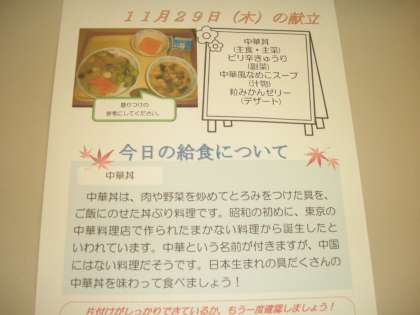 11月29日（木）の献立
中華丼
(主食・主菜)
ピリ辛きゅうり
(副菜)
中華風なめこスープ
(汁物)
粒みかんゼリー
(デザート)
盛りつけの
参考にしてください。
今日の給食について
中華丼
中華丼は、肉や野菜を炒めてとろみをつけた具を、
ご飯にのせた丼ぶり料理です。昭和の初めに、東京の
中華料理店で作られたまかない料理から誕生したと
いわれています。中華という名前が付きますが、中国
にはない料理だそうです。日本生まれの具だくさんの
中華丼を味わって食べましょう！
片付けがしっかりできているか、もう一度確認しましょう！